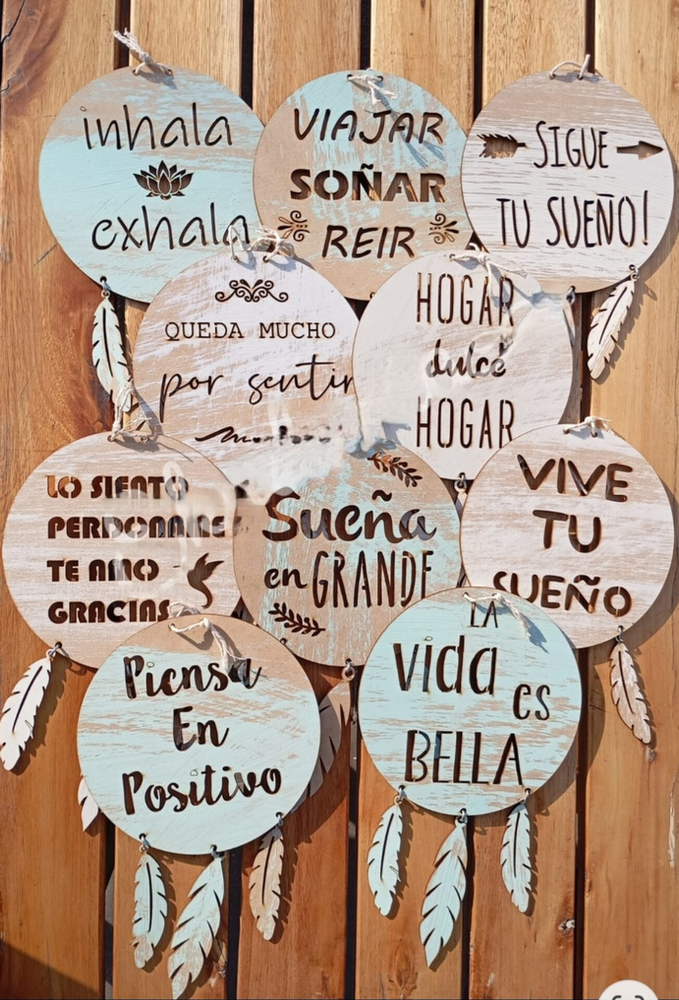 inhala
exhala
VIAJAR
SOÑAR
REIR
SIGUE
TU SUEÑO!
QUEDA MUCHO
por sentir
HOGAR
dulce
HOGAR
LO SIENTO
PERDONAME
TE AMO
GRACIAS
Sueña
en GRANDE
VIVE
TU
SUEÑO
Piensa
En
Positivo
LA
vida
es
BELLA